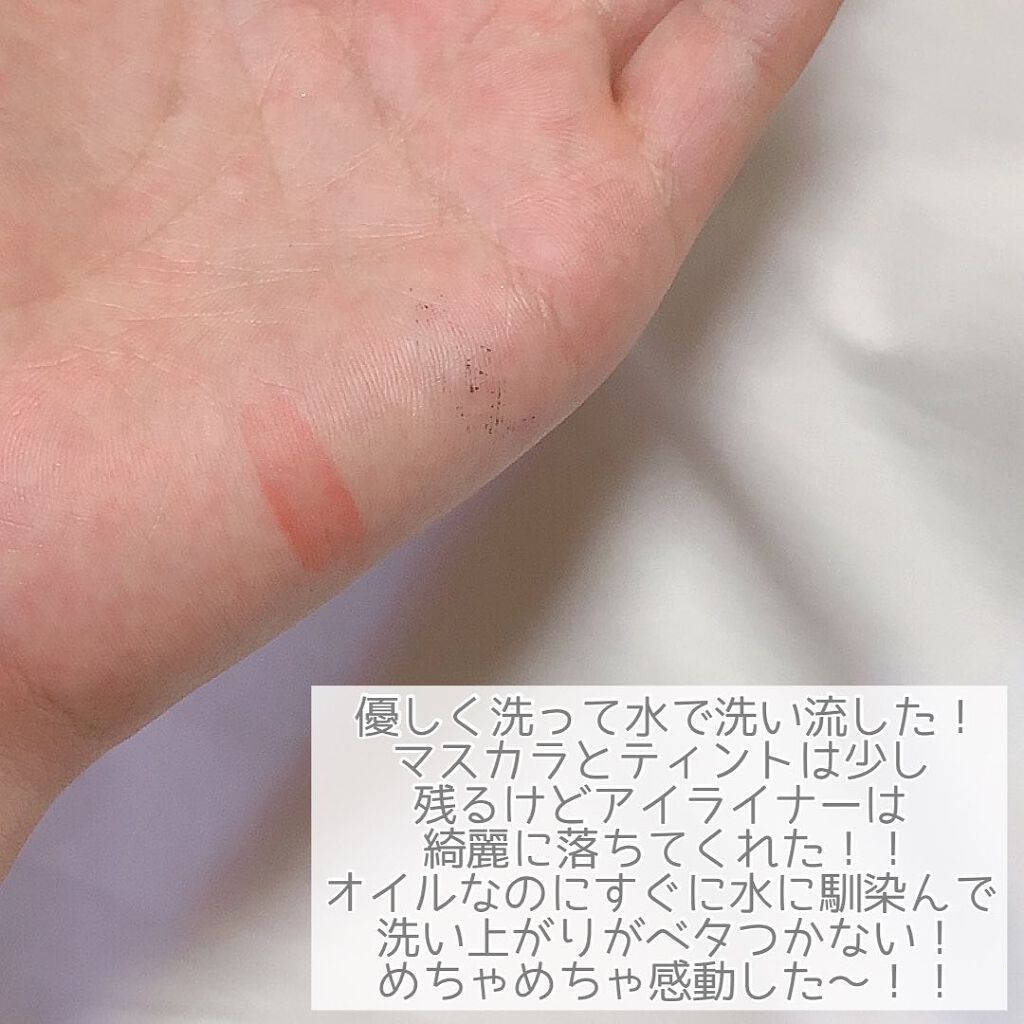 優しく洗って水で洗い流した！
マスカラとティントは少し
残るけどアイライナーは
綺麗に落ちてくれた！！
オイルなのにすぐに水に馴染んで
洗い上がりがベタつかない！
めちゃめちゃ感動した〜！！